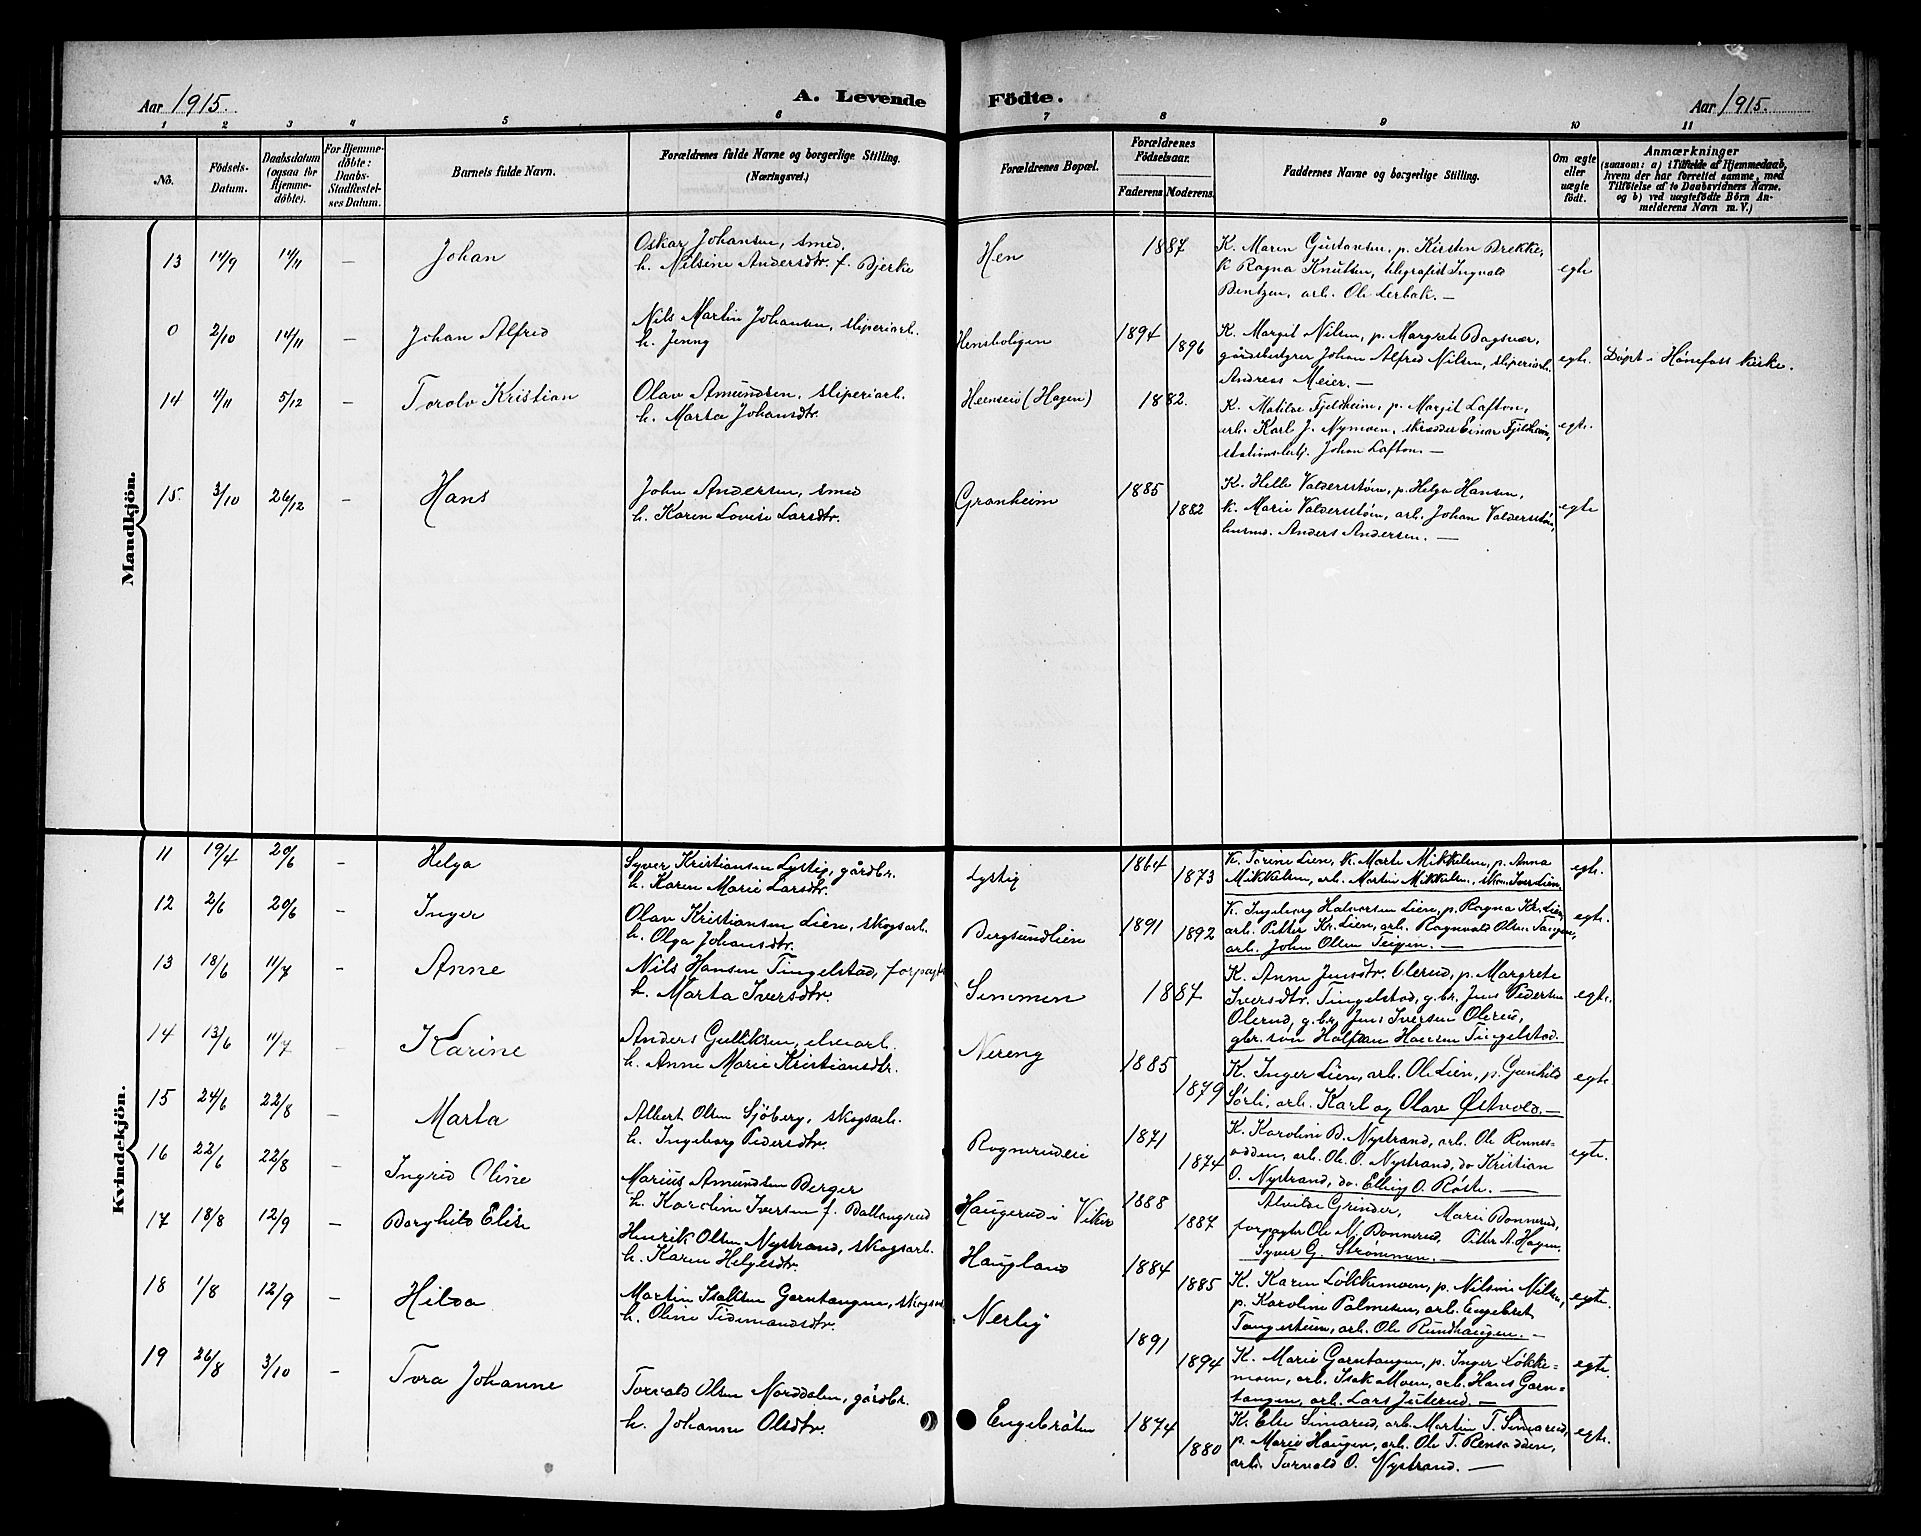 Aar 1915.
A. Levende
Födte.
Aar 1915.
1 2 3 4 5 6 7 8 9 10 11
No.
Födsels-
Datum.
Daabsdatum
(ogsaa for
Hjemme-
döbte).
For Hjemme-
döbte:
Daabs-
Stadfæstel-
ses Datum.
Barnets fulde Navn.
Forældrenes fulde Navne og borgerlige Stilling.
(Næringsvei.)
Forældrenes Bopæl.
Forældrenes
Födselsaar.
Faderens. Moderens.
Faddernes Navne og borgerlige Stilling.
Om ægte
eller
uægte
födt.
Anmærkninger
(saasom: a) i Tilfælde af Hjemmedaab,
hvem der har forrettet samme, med
Tilföielse af to Daabsvidners Navne.
og b) ved uægtefödte Börn An-
melderens Navn m. V.)
Mandkjön.
13 14/9 14/11 — Johan
Oskar Johansen, smed,
h. Nilsine Andersdtr. f. Bjerke
Hen 1887
K. Maren Gustavsen, p. Kirsten Brekke,
k Ragna Knutsen, telegrafist Ingvald
Bentzen, arb. Ole Lerbak. —
egte
0 2/10 14/11 — Johan Alfred
Nils Martin Johansen, sliperiarb.
h. Jenny
Hensboligen 1894 1896
K. Margit Nilsen, p. Margrete Bagsvær,
gårdsbestyrer Johan Alfred Nilsen, sliperiarb.
Andreas Meier. —
egte. Döpt i Hönefoss kirke.
14 4/11 5/12 — Torolv Kristian
Olav Amundsen, sliperiarb.
h. Marta Johansdtr.
Heenseie (Hagen) 1882.
K. Matilde Fjeldheim, p. Margit Lafton,
arb. Karl J. Nymoen, skrædder Einar Fjeldheim,
stationsbetj. Johan Lafton. —
egte.
15. 3/10 26/12 — Hans
John Andersen, smed
h. Karen Lovise Larsdtr.
Granheim 1885 1882
K. Helle Valdersstöin, p. Helga Hansen,
k. Marie Valdersstöin, arb. Johan Valdersstöin,
husms. Anders Andersen. —
egte
Kvindekjön.
11 19/4 20/6 — Helga
Syver Kristiansen Lystig, gårdbr.
h. Karen Marie Larsdtr.
Lystig 1864 1873
K. Torine Lien, k. Marte Mikkelsen, p. Anna
Mikkelsen, arb. Martin Mikkelsen, skom. Iver Lien.
egte.
12 2/6 20/6 — Inger
Olav Kristiansen Lien, skogsarb.
h. Olga Johansdtr.
Bergsundlien 1891 1892
K. Ingeborg Halvorsen Lien, p. Ragna Kr. Lien,
arb. Petter Kr. Lien, arb. Ragnvald Olsen Tangen,
arb. John Olsen Teigen. —
egte.
13 18/6 11/7 — Anne
Nils Hansen Tingelstad, forpagter
h. Marta Iversdtr.
Semmen 1887
K. Anne Jensdtr. Olerud, p. Margrete
Iversdtr. Tingelstad, g.br. Jens Pedersen
Olerud, g.br. Jens Iversen Olerud,
gbr. sön Halfdan Hansen Tingelstad.
egte.
14 13/6 11/7 — Karine
Anders Gulliksen, elvearb.
h. Anne Marie Kristiansdtr.
Nereng 1885 1879
K. Inger Lien, arb. Ole Lien, p. Gunhild
Sørli, arb. Karl og Olav Østvold. —
egte.
15 24/6 22/8 — Marta
Albert Olsen Sjöberg, skogsarb.
h. Ingeborg Pedersdtr.
Rognerudeie 1871 1874
K. Karoline B. Nystrand, arb. Ole Rennes-
odden, arb. Ole O. Nystrand, do Kristian
O. Nystrand, do. Elling O. Røste. —
egte.
16 22/6 22/8 — Ingrid Oline
Marius Amundsen Berger
h. Karoline Iversen f. Ballangrud
Haugerud i Viker 1888 1887
Alvilde Grinder, Marie Bonnerud,
forpagter Ole N. Bonnerud, Petter A. Hagen,
Syver G. Strømmen. —
17 18/8 12/9 — Borghild Elise
Henrik Olsen Nystrand, skogsarb.
h. Karen Helgesdtr.
Haugland 1884 1885
K. Karen Løkkemoen, p. Nilsine Nilsen,
p. Karoline Palmesen, arb. Engebret
Tangestuen, arb. Ole Rundhaugen. —
egte.
18 1/8 12/9 — Hilda
Martin Isaksen Garntangen, skogsarb.
h. Oline Tidemandsdtr.
Nerby 1891 1894
K. Marie Garntangen, p. Inger Løkke=
moen, arb. Isak Moen, arb. Hans Garn=
tangen, arb. Lars Juterud. —
egte.
19 26/8 3/10 — Tora Johanne
Torvald Olsen Norddalen, gårdbr.
h. Johanne Olsdtr.
Engebråten 1874 1880
K. Else Simarud, arb. Martin T. Simarud,
p. Marie Haugen, arb. Ole T. Rensodden,
arb. Torvald O. Nystrand. —
egte.